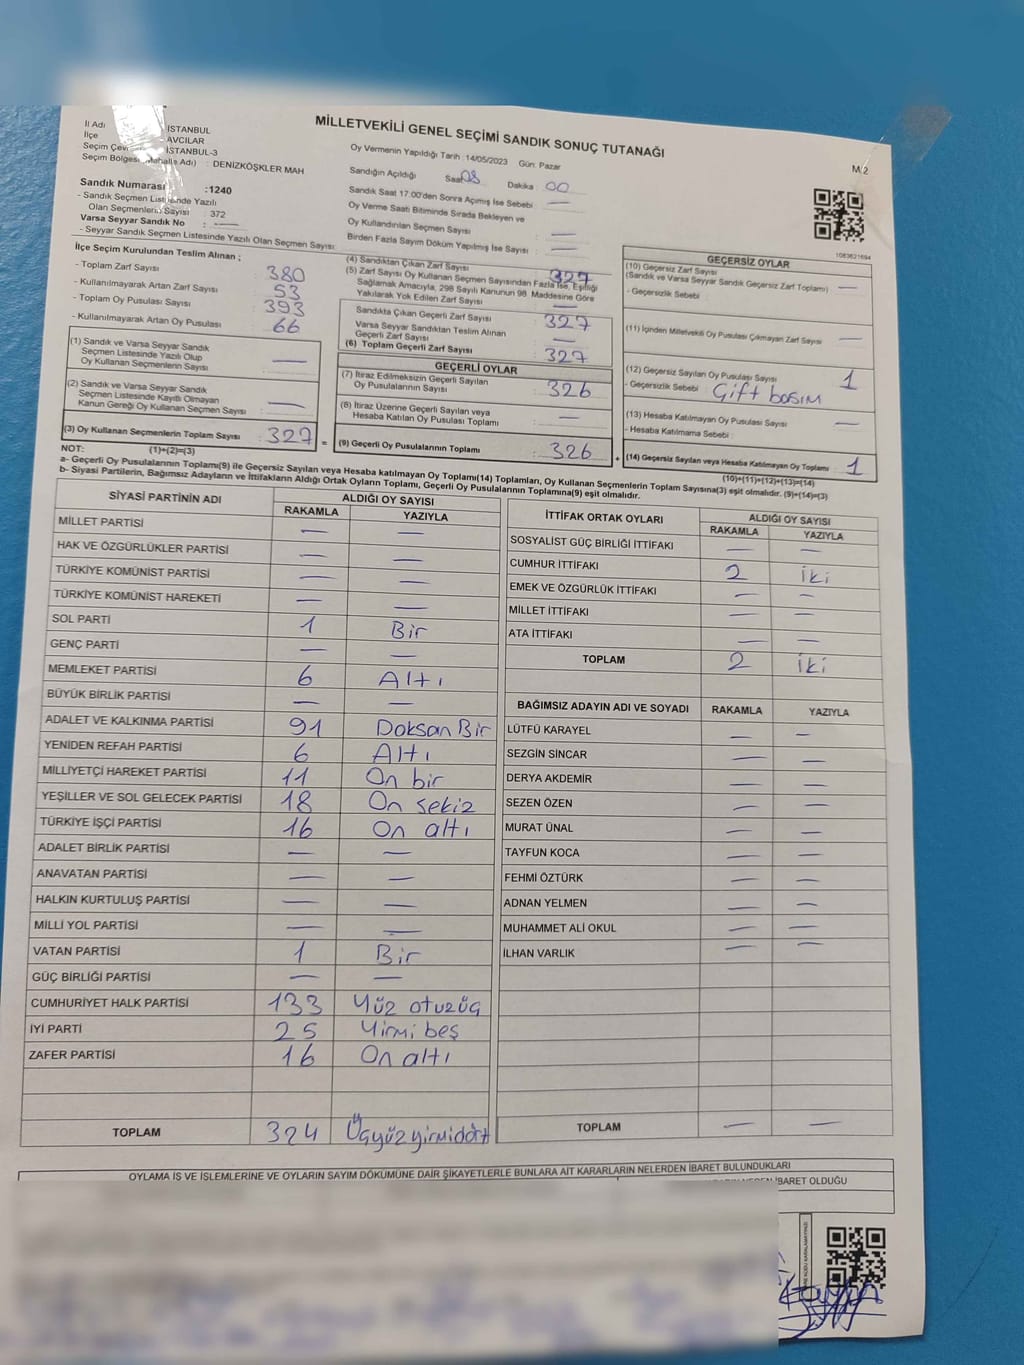 MİLLETVEKİLİ GENEL SEÇİMİ SANDIK SONUÇ TUTANAĞI
M/2
İl Adı İSTANBUL
İlçe AVCILAR
Seçim Çev İSTANBUL-3
Seçim Bölgesi (Mahalle Adı) : DENİZKÖŞKLER MAH
Sandık Numarası :1240
- Sandık Seçmen Listesinde Yazılı
Olan Seçmenlerin Sayısı : 372
Varsa Seyyar Sandık No : —
- Seyyar Sandık Seçmen Listesinde Yazılı Olan Seçmen Sayısı:
Oy Vermenin Yapıldığı Tarih :14/05/2023 Gün: Pazar
Sandığın Açıldığı Saat 08 Dakika 00
Sandık Saat 17.00'den Sonra Açımış İse Sebebi : —
Oy Verme Saati Bitiminde Sırada Bekleyen ve
Oy Kullandırılan Seçmen Sayısı : —
Birden Fazla Sayım Döküm Yapılmış İse Sayısı : —
1083621694
İlçe Seçim Kurulundan Teslim Alınan ;
- Toplam Zarf Sayısı : 380
- Kullanılmayarak Artan Zarf Sayısı : 53
- Toplam Oy Pusulası Sayısı : 393
- Kullanılmayarak Artan Oy Pusulası : 66
(1) Sandık ve Varsa Seyyar Sandık
Seçmen Listesinde Yazılı Olup
Oy Kullanan Seçmenlerin Sayısı : —
(2) Sandık ve Varsa Seyyar Sandık
Seçmen Listesinde Kayıtlı Olmayan
Kanun Gereği Oy Kullanan Seçmen Sayısı : —
(3) Oy Kullanan Seçmenlerin Toplam Sayısı : 327 =
(1)+(2)=(3)
(4) Sandıktan Çıkan Zarf Sayısı : 327
(5) Zarf Sayısı Oy Kullanan Seçmen Sayısından Fazla İse, Eşitliği
Sağlamak Amacıyla, 298 Sayılı Kanunun 98. Maddesine Göre
Yakılarak Yok Edilen Zarf Sayısı : —
Sandıkta Çıkan Geçerli Zarf Sayısı : 327
Varsa Seyyar Sandıktan Teslim Alınan
Geçerli Zarf Sayısı : —
(6) Toplam Geçerli Zarf Sayısı : 327
GEÇERLİ OYLAR
(7) İtiraz Edilmeksizin Geçerli Sayılan
Oy Pusulalarının Sayısı : 326
(8) İtiraz Üzerine Geçerli Sayılan veya
Hesaba Katılan Oy Pusulası Toplamı : —
(9) Geçerli Oy Pusulalarının Toplamı : 326 +
GEÇERSİZ OYLAR
(10) Geçersiz Zarf Sayısı
(Sandık ve Varsa Seyyar Sandık Geçersiz Zarf Toplamı) : —
- Geçersizlik Sebebi :
(11) İçinden Milletvekili Oy Pusulası Çıkmayan Zarf Sayısı : —
(12) Geçersiz Sayılan Oy Pusulası Sayısı : 1
- Geçersizlik Sebebi : Çift basım
(13) Hesaba Katılmayan Oy Pusulası Sayısı : —
- Hesaba Katılmama Sebebi :
(14) Geçersiz Sayılan veya Hesaba Katılmayan Oy Toplamı : 1
(10)+(11)+(12)+(13)=(14)
NOT:
a- Geçerli Oy Pusulalarının Toplamı(9) ile Geçersiz Sayılan veya Hesaba katılmayan Oy Toplamı(14) Toplamları, Oy Kullanan Seçmenlerin Toplam Sayısına(3) eşit olmalıdır. (9)+(14)=(3)
b- Siyasi Partilerin, Bağımsız Adayların ve İttifakların Aldığı Ortak Oyların Toplamı, Geçerli Oy Pusulalarının Toplamına(9) eşit olmalıdır.
SİYASİ PARTİNİN ADI ALDIĞI OY SAYISI
RAKAMLA YAZIYLA
MİLLET PARTİSİ — —
HAK VE ÖZGÜRLÜKLER PARTİSİ — —
TÜRKİYE KOMÜNİST PARTİSİ — —
TÜRKİYE KOMÜNİST HAREKETİ — —
SOL PARTİ 1 Bir
GENÇ PARTİ — —
MEMLEKET PARTİSİ 6 Altı
BÜYÜK BİRLİK PARTİSİ — —
ADALET VE KALKINMA PARTİSİ 91 Doksan Bir
YENİDEN REFAH PARTİSİ 6 Altı
MİLLİYETÇİ HAREKET PARTİSİ 11 On bir
YEŞİLLER VE SOL GELECEK PARTİSİ 18 On sekiz
TÜRKİYE İŞÇİ PARTİSİ 16 On altı
ADALET BİRLİK PARTİSİ — —
ANAVATAN PARTİSİ — —
HALKIN KURTULUŞ PARTİSİ — —
MİLLİ YOL PARTİSİ — —
VATAN PARTİSİ 1 Bir
GÜÇ BİRLİĞİ PARTİSİ — —
CUMHURİYET HALK PARTİSİ 133 Yüz otuzüç
İYİ PARTİ 25 Yirmi beş
ZAFER PARTİSİ 16 On altı
TOPLAM 324 Üçyüzyirmidört
İTTİFAK ORTAK OYLARI ALDIĞI OY SAYISI
RAKAMLA YAZIYLA
SOSYALİST GÜÇ BİRLİĞİ İTTİFAKI — —
CUMHUR İTTİFAKI 2 iki
EMEK VE ÖZGÜRLÜK İTTİFAKI — —
MİLLET İTTİFAKI — —
ATA İTTİFAKI — —
TOPLAM 2 iki
BAĞIMSIZ ADAYIN ADI VE SOYADI RAKAMLA YAZIYLA
LÜTFÜ KARAYEL — —
SEZGİN SİNCAR — —
DERYA AKDEMİR — —
SEZEN ÖZEN — —
MURAT ÜNAL — —
TAYFUN KOCA — —
FEHMİ ÖZTÜRK — —
ADNAN YELMEN — —
MUHAMMET ALİ OKUL — —
İLHAN VARLIK — —
TOPLAM — —
OYLAMA İŞ VE İŞLEMLERİNE VE OYLARIN SAYIM DÖKÜMÜNE DAİR ŞİKAYETLERLE BUNLARA AİT KARARLARIN NELERDEN İBARET BULUNDUKLARI
İBARET OLDUĞU